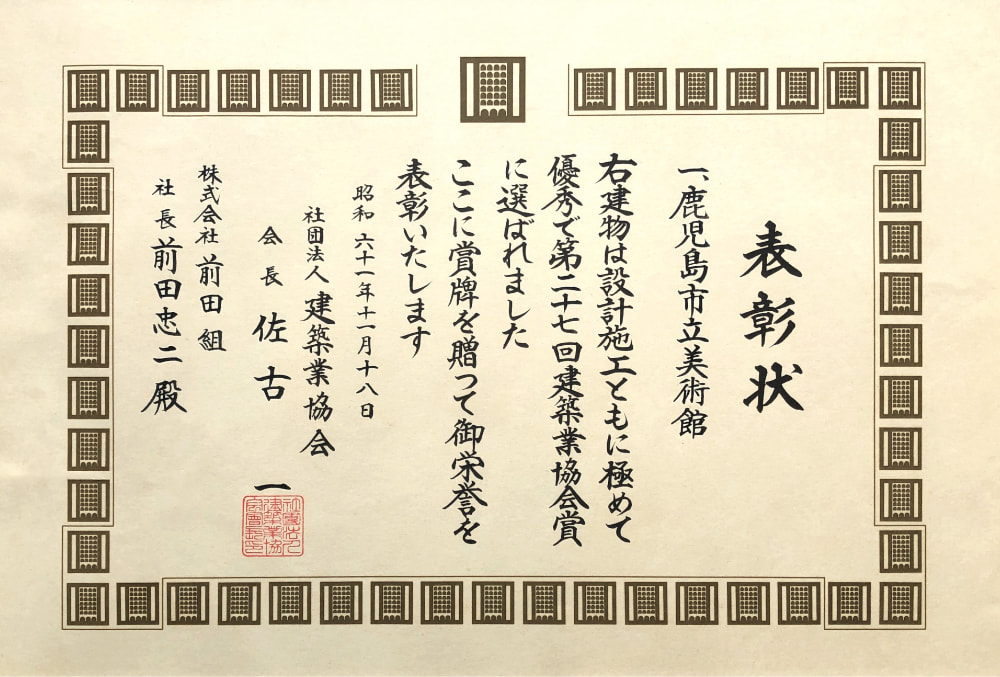 表彰状
一、鹿児島市立美術館
右建物は設計施工ともに極めて
優秀で第二十七回建築業協会賞
に選ばれました
ここに賞牌を贈って御栄誉を
表彰いたします
昭和六十一年十一月十八日
社団法人 建築業協会
会長 佐古一
株式会社 前田組
社長 前田忠二 殿